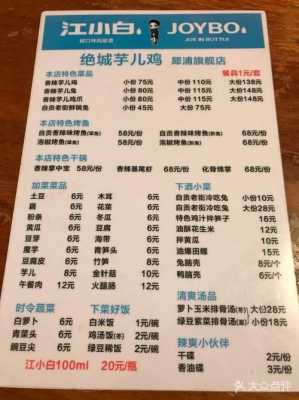 江小白 JOYBO
JOY IN BOTTLE
绝城芋儿鸡 犀浦旗舰店
本店特色菜品 餐具1元/套
香辣芋儿鸡 小份 75元 中份 110元 大份138元
香辣芋儿兔 小份 80元 中份 115元 大份148元
香辣芋儿鸡爪 小份 80元 中份 115元 大份145元
自贡老街鲜锅兔 小份 75元
本店特色烤鱼
自贡香辣味烤鱼 58元/份 自贡香辣味烤鱼 68元/份
泡椒烤鱼 58元/份 泡椒烤鱼 68元/份
本店特色干锅
香辣掌中宝 58元/份 香辣基尾虾 68元/份 化骨绵掌 68元/份
加菜菜品 下酒小菜
土豆 6元 木耳 6元 自贡老街冷吃兔 小份10元
藕 6元 花菜 6元 自贡老街冷吃兔 大份28元
粉条 6元 冬瓜 6元 特色鸡汁拌笋子 16元
黄瓜 6元 豆腐 6元 油酥花生米 12元
豆芽 6元 海带 6元 拌黄瓜 10元
魔芋 6元 青笋头 6元 油爆田螺 15元
豆腐皮 6元 竹笋 8元 兔脑壳 8元/个
芋儿 8元 金针菇 10元 鸭脑壳 6元/个
午餐肉 12元 火腿肠 12元
时令蔬菜 下菜好饭 清爽汤品
白萝卜 6元 白米饭 1元/碗 萝卜玉米排骨汤 大份28元
青菜头 6元 鸡汤饭 2元/碗 绿豆紫菜排骨汤 小份18元
豌豆尖 6元 绿豆稀饭 2元/碗 辣爽小伙伴
干碟 2元/份
香油碟 3元/份
江小白100ml 20元/瓶